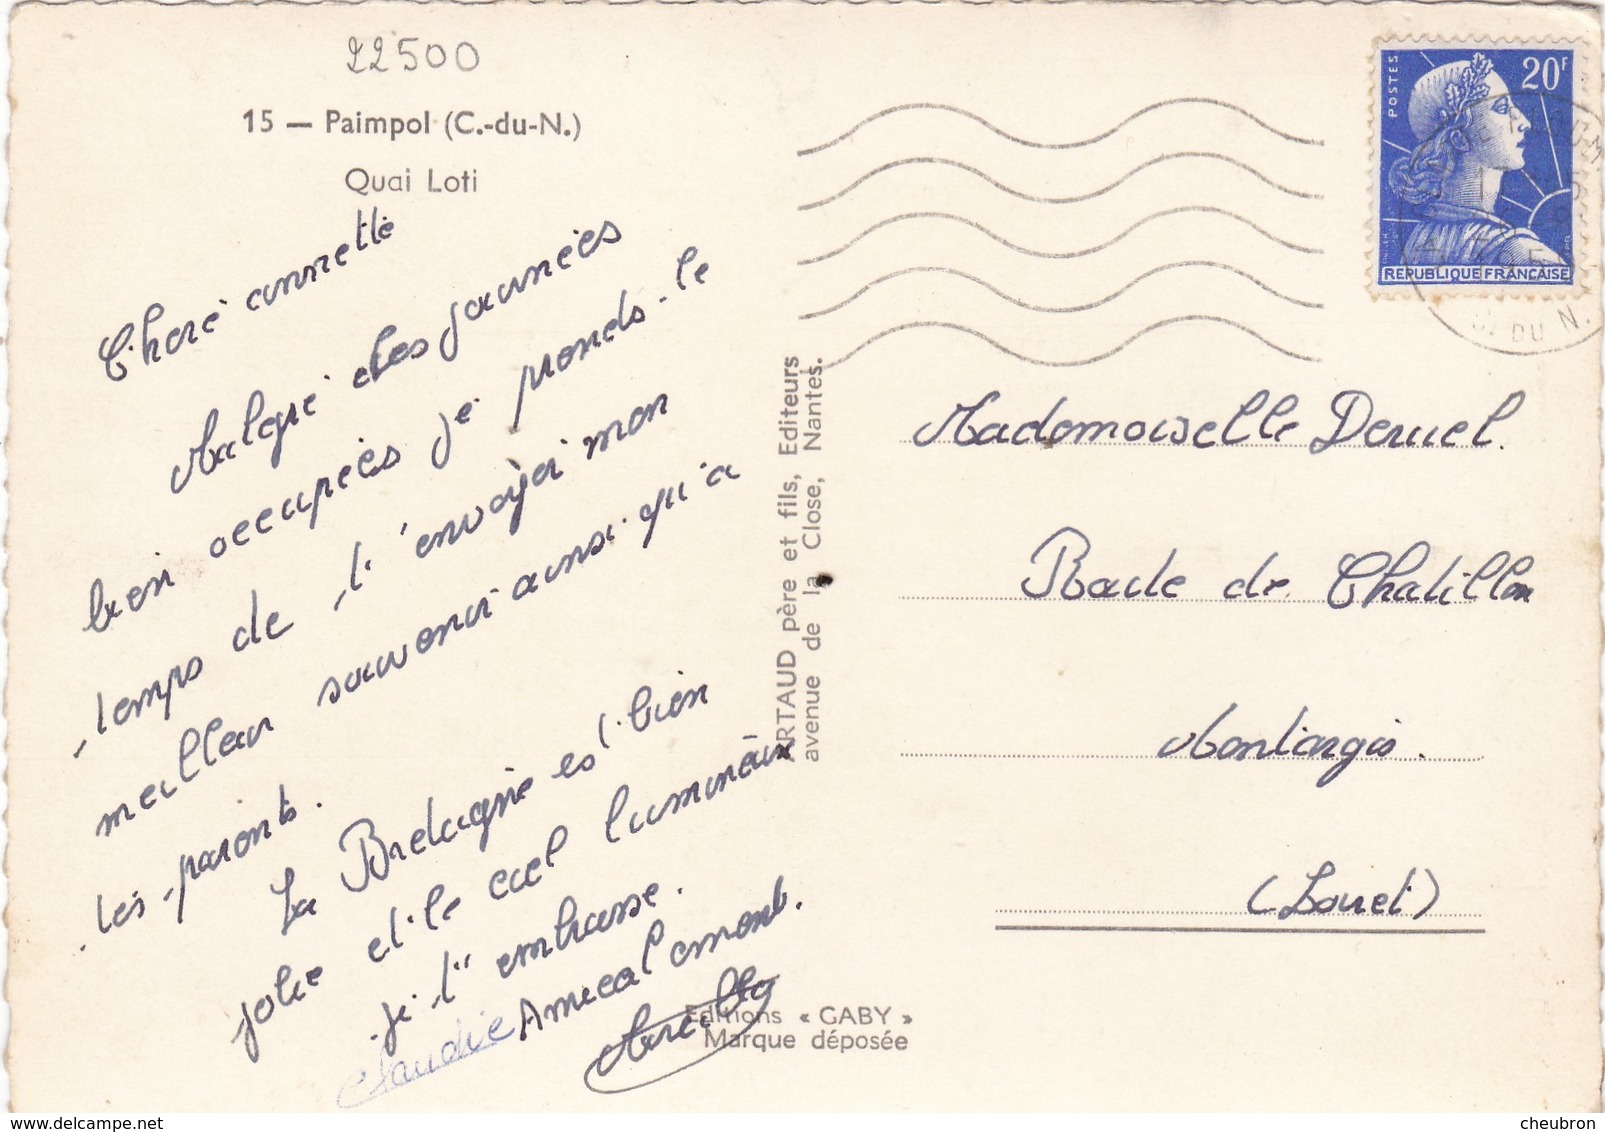 22500
15 — Paimpol (C.-du-N.)
Quai Loti
Chère Annette
Malgré des journées
bien occupées je prends le
temps de t'envoyer mon
meilleur souvenir ainsi qu'à
tes parents.
La Bretagne est bien
jolie et le ciel lumineux
je t'embrasse.
Amicalement.
Claudie
ARTAUD père et fils, Editeurs
avenue de la Close, Nantes.
Editions « GABY »
Marque déposée
POSTES
20F
REPUBLIQUE FRANÇAISE
DU N.
Mademoiselle Deruel.
Route de Chatillon
Montargis.
(Loiret)
www.delcampe.net
cheubron